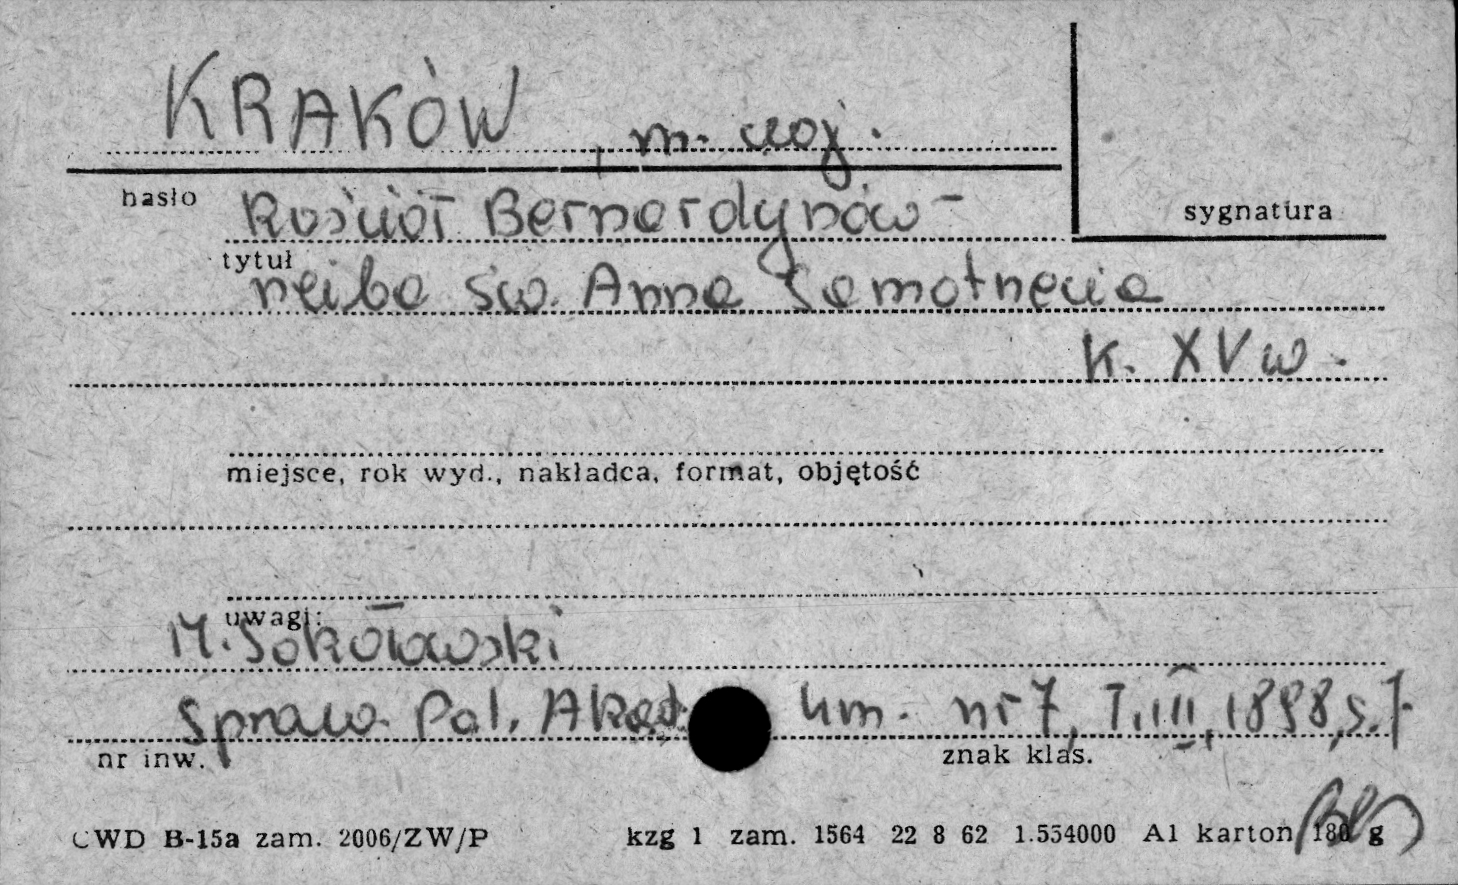 KRAKÓW, m. woj.
hasło
sygnatura
Kościół Bernardynów -
tytuł
rzeźba św. Anna Samotrzecia
k. XV w.
miejsce, rok wyd., nakładca, format, objętość
uwagi:
M. Sokołowski
Spraw. Pol. Akad. Um. nr 7, T. III, 1898, s. 7.
nr inw.
znak klas.
CWD B-15a zam. 2006/ZW/P kzg 1 zam. 1564 22 8 62 1.554000 A1 karton 180 g